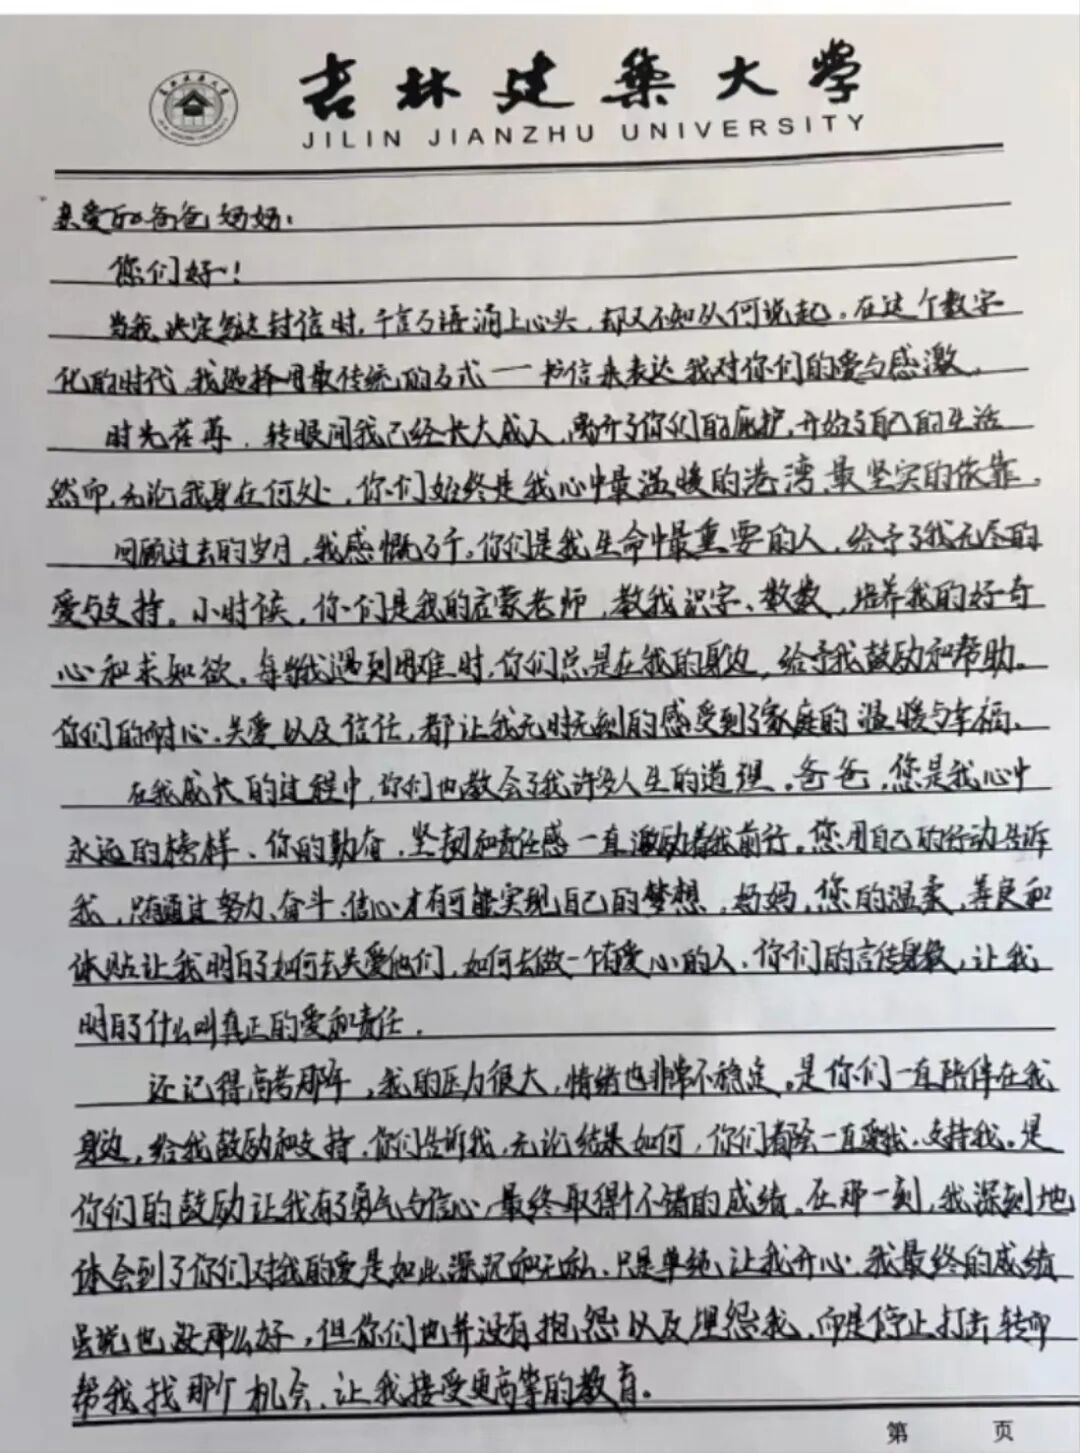 吉林建築大学
JILIN JIANZHU UNIVERSITY
亲爱的爸爸妈妈:
您们好!
当我决定写这封信时,千言万语涌上心头,却又不知从何说起。在这个数字
化的时代,我选择用最传统的方式一书信来表达我对你们的爱与感激。
时光荏苒,转眼间我已经长大成人,离开了你们的庇护,开始了自己的生活
然即,无论我身在何处,你们始终是我心中最温暖的港湾、最坚实的依靠。
回顾过去的岁月,我感慨万千,你们是我生命中最重要的人,给予了我无尽的
爱与支持。小时候,你们是我的启蒙老师,教我识字、数数,培养我的好奇
心和求知欲。每当我遇到困难时,你们总是在我的身边,给予我鼓励和帮助。
你们的耐心、关爱以及信任,都让我无时无刻的感受到了家庭的温暖与幸福。
在我成长的过程中,你们也教会了我许多人生的道理。爸爸,您是我心中
永远的榜样、你的勤奋、坚韧和责任感一直激励着我前行。您用自己的行动告诉
我,只有通过努力、奋斗、信心才有可能实现自己的梦想,妈妈,您的温柔、善良和
体贴让我明白了如何去关爱他们,如何去做一个有爱心的人、你们的言传身教,让我
明白了什么叫真正的爱和责任.
还记得高考那年,我的压力很大,情绪也非常不稳定。是你们一直陪伴在我
身边,给我鼓励和支持,你们告诉我,无论结果如何,你们都会一直爱我、支持我。是
你们的鼓励让我有了勇气与信心,最终取得个不错的成绩。在那一刻,我深刻地
体会到了你们对我的爱是如此深沉和无私、只是单纯让我开心,我最终的成绩
虽说也没那么好,但你们也并没有抱怨以及埋怨我、而是停止打击转即
帮我找那个机会、让我接受更高等的教育。
第 页